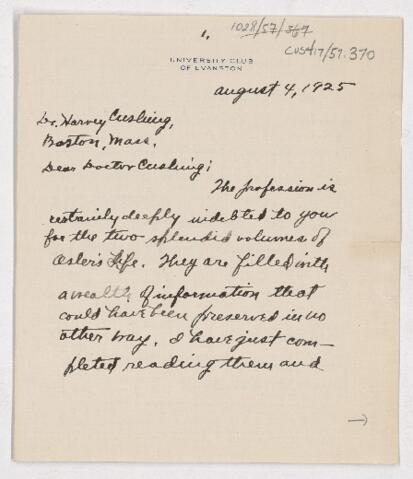 1.
1028/57/367
CUS417/57.370
UNIVERSITY CLUB
OF EVANSTON
August 4, 1925
Dr. Harvey Cushing,
Boston, Mass.
Dear Doctor Cushing;
The profession is
certainly deeply indebted to you
for the two splendid volumes of
Osler's Life. They are filled with
a wealth of information that
could have been preserved in no
other way. I have just com-
pleted reading them and
→